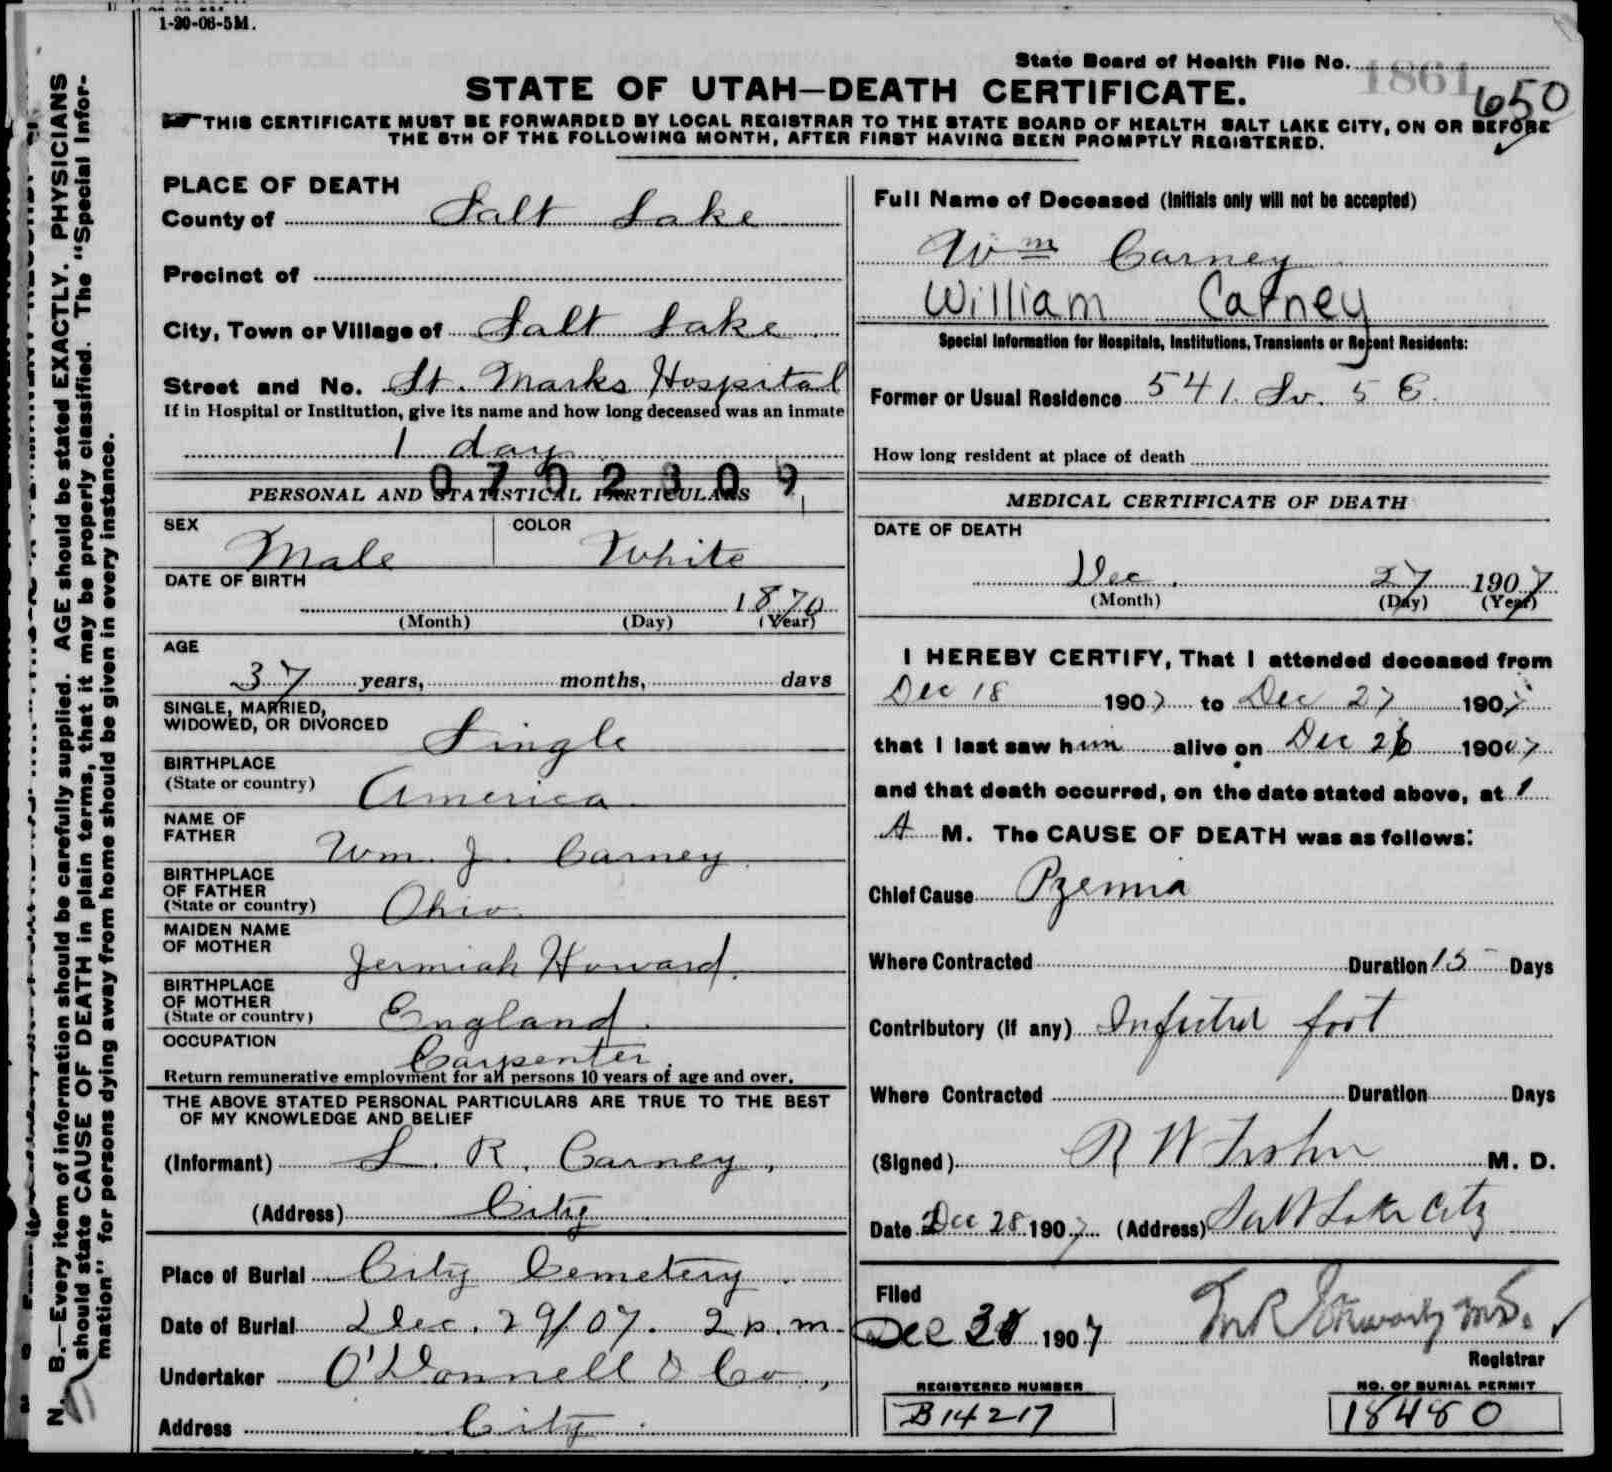 1-20-06-5M.
State Board of Health File No. 1861 650
STATE OF UTAH—DEATH CERTIFICATE.
THIS CERTIFICATE MUST BE FORWARDED BY LOCAL REGISTRAR TO THE STATE BOARD OF HEALTH SALT LAKE CITY, ON OR BEFORE
THE 5TH OF THE FOLLOWING MONTH, AFTER FIRST HAVING BEEN PROMPTLY REGISTERED.
N. B.—Every item of information should be carefully supplied. AGE should be stated EXACTLY. PHYSICIANS
should state CAUSE OF DEATH in plain terms, that it may be properly classified. The "Special Infor-
mation" for persons dying away from home should be given in every instance.
PLACE OF DEATH
County of Salt Lake
Precinct of
City, Town or Village of Salt Lake
Street and No. St. Marks Hospital
If in Hospital or Institution, give its name and how long deceased was an inmate
1 day
0702309
PERSONAL AND STATISTICAL PARTICULARS
SEX Male COLOR White
DATE OF BIRTH
1870
(Month) (Day) (Year)
AGE
37 years, months, days
SINGLE, MARRIED,
WIDOWED, OR DIVORCED Single
BIRTHPLACE
(State or country) America
NAME OF
FATHER Wm. J. Carney
BIRTHPLACE
OF FATHER
(State or country) Ohio
MAIDEN NAME
OF MOTHER Jermiah Howard.
BIRTHPLACE
OF MOTHER
(State or country) England.
OCCUPATION Carpenter.
Return remunerative employment for all persons 10 years of age and over.
THE ABOVE STATED PERSONAL PARTICULARS ARE TRUE TO THE BEST
OF MY KNOWLEDGE AND BELIEF
(Informant) L. R. Carney,
(Address) City
Place of Burial City Cemetery.
Date of Burial Dec. 29/07. 2 p.m.
Undertaker O'Donnell & Co.,
Address City.
Full Name of Deceased (Initials only will not be accepted)
Wm Carney
William Carney
Special Information for Hospitals, Institutions, Transients or Recent Residents:
Former or Usual Residence 541. So. 5 E.
How long resident at place of death
MEDICAL CERTIFICATE OF DEATH
DATE OF DEATH
Dec. 27 1907
(Month) (Day) (Year)
I HEREBY CERTIFY, That I attended deceased from
Dec 18 1907 to Dec 27 1907
that I last saw him alive on Dec 26 19007
and that death occurred, on the date stated above, at 1
A M. The CAUSE OF DEATH was as follows:
Chief Cause Pyemia
Where Contracted Duration 15 Days
Contributory (If any) Infected foot
Where Contracted Duration Days
(Signed) R W M. D.
Date Dec 28 1907 (Address) Salt Lake City
Filed
Dec 1907
Registrar
REGISTERED NUMBER
B14217
NO. OF BURIAL PERMIT
18480